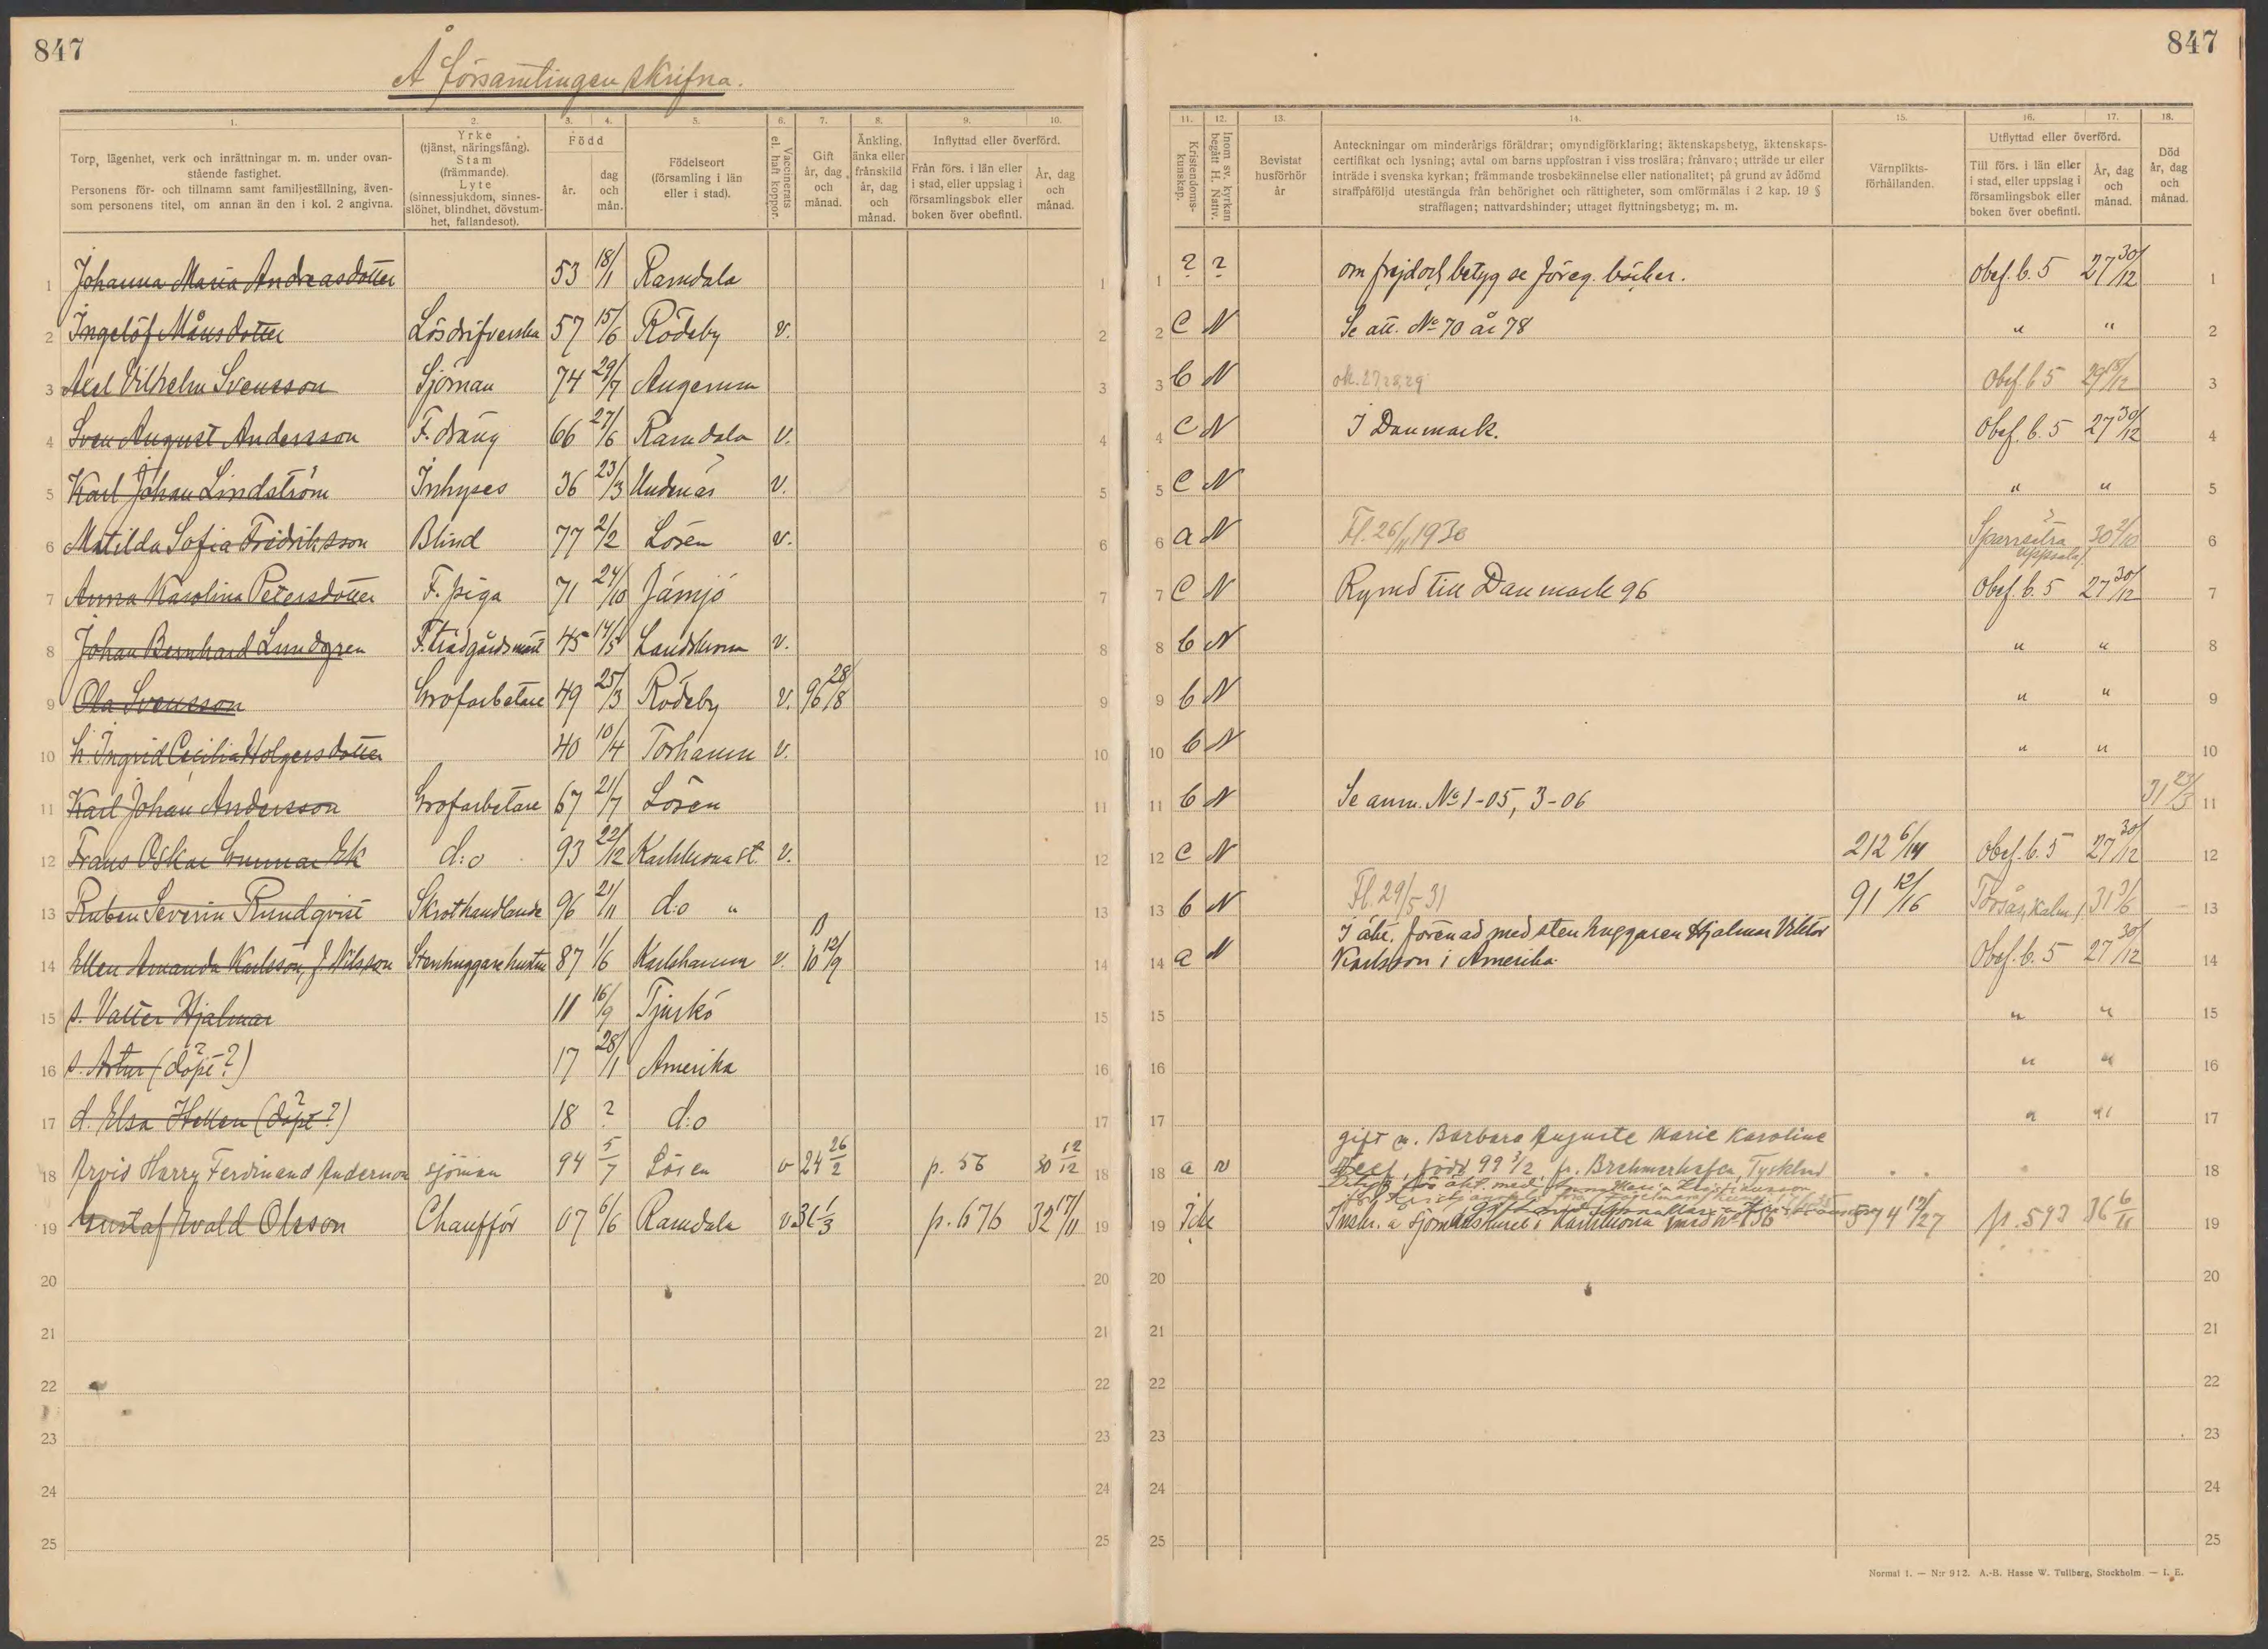 847
847
Å församlingen skrifna.
1.
Torp, lägenhet, verk och inrättningar m. m. under ovan-
stående fastighet.
Personens för- och tillnamn samt familjeställning, även-
som personens titel, om annan än den i kol. 2 angivna.
2.
Yrke
(tjänst, näringsfång).
Stam
(främmande).
Lyte
(sinnessjukdom, sinnes-
slöhet, blindhet, dövstum-
het, fallandesot).
3. 4.
Född
år.
dag
och
mån.
5.
Födelseort
(församling i län
eller i stad).
6.
Vaccinerats
el. haft koppor.
7.
Gift
år, dag
och
månad.
8.
Änkling,
änka eller
frånskild
år, dag
och
månad.
9. 10.
Inflyttad eller överförd.
Från förs. i län eller
i stad, eller uppslag i
församlingsbok eller
boken över obefintl.
År, dag
och
månad.
11.
Kristendoms-
kunskap.
12.
Inom sv. kyrkan
begått H. Nattv.
13.
Bevistat
husförhör
år
14.
Anteckningar om minderårigs föräldrar; omyndigförklaring; äktenskapsbetyg, äktenskaps-
certifikat och lysning; avtal om barns uppfostran i viss troslära; frånvaro; utträde ur eller
inträde i svenska kyrkan; främmande trosbekännelse eller nationalitet; på grund av ådömd
straffpåföljd utestängda från behörighet och rättigheter, som omförmälas i 2 kap. 19 §
strafflagen; nattvardshinder; uttaget flyttningsbetyg; m. m.
15.
Värnplikts-
förhållanden.
16. 17.
Utflyttad eller överförd.
Till förs. i län eller
i stad, eller uppslag i
församlingsbok eller
boken över obefintl.
År, dag
och
månad.
18.
Död
år, dag
och
månad.
1 Johanna Maria Andreasdotter 53 18/1 Ramdala 1 1 ? ? om frejd och betyg se föreg. böcker. Obef. b. 5 27 30/12 1
2 Ingelöf Månsdotter Lösdrifverska 57 15/6 Rödeby v. 2 2 C N Se att. No 70 år 78 " " 2
3 Axel Vilhelm Svensson Sjöman 74 29/7 Augerum 3 3 b N Obef. b 5 29 18/12 3
4 Sven August Andersson F. dräng 66 27/6 Ramdala v. 4 4 C N I Danmark. Obef. b. 5 27 30/12 4
5 Karl Johan Lindström Inhyses 36 23/3 Undenäs v. 5 5 C N " " 5
6 Matilda Sofia Fredriksson Blind 77 2/2 Lösen v. 6 6 a N Fl. 26/11 1930 Sparrsätra Uppsala 30 2/10 6
7 Anna Karolina Petersdotter F. piga 71 24/10 Jämjö 7 7 C N Rymd till Danmark 96 Obef. b. 5 27 30/12 7
8 Johan Bernhard Lundgren F. trädgårdsmäst 45 14/5 Landskrona v. 8 8 b N " " 8
9 Ola Svensson Grofarbetare 49 25/3 Rödeby v. 96 28/8 9 9 b N " " 9
10 h. Ingrid Cecilia Holgersdotter 40 10/4 Torhamn v. 10 10 b N " " 10
11 Karl Johan Andersson Grofarbetare 67 21/7 Lösen 11 11 b N Se anm. No 1-05, 3-06 31 23/3 11
12 Frans Oskar Gunnar Ek d:o 93 22/12 Karlskrona st. v. 12 12 C N 212 6/14 Obef. b. 5 27 30/12 12
13 Ruben Severin Rundqvist Skrothandlande 96 21/11 d:o " 13 13 b N Fl. 29/5 31 91 12/16 Torsås, Kalm. l. 31 3/6 13
14 Ellen Amanda Karlsson, f. Nilsson Stenhuggarehustru 87 1/6 Karlshamn v. 10 12/9 14 14 a N I äkt. förenad med stenhuggaren Hjalmar Viktor
Karlsson i Amerika. Obef. b. 5 27 30/12 14
15 s. Valter Hjalmar 11 16/9 Tjurkö 15 15 " " 15
16 s. Artur (döpt?) 17 28/1 Amerika 16 16 " " 16
17 d. Elsa Hellen (döpt?) 18 ? d:o 17 17 " " 17
18 Arvid Harry Ferdinand Anderson sjöman 94 5/7 Lösen v 24 26/2 p. 56 30 12/12 18 18 a N gift m. Barbara Auguste Marie Karoline
född 99 3/2 fr. Tyskland 18
19 Gustaf Evald Olsson Chaufför 07 6/6 Ramdala v. 31 1/3 p. 676 32 17/11 19 19 Inskr. a sjömanshuset i Karlskrona med No 574 12/27 p. 593 36 6/11 19
20 20 20
21 21 21 21
22 22 22 22
23 23 23 23
24 24 24 24
25 25 25 25
Normal 1. — N:r 912. A.-B. Hasse W. Tullberg, Stockholm. — I. E.